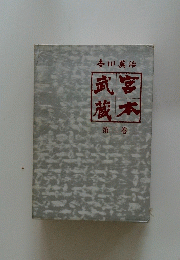 吉川英治
宮本
武蔵
第 巻